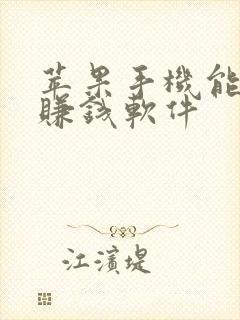 苹果手機能
賺錢軟件
江濱堤